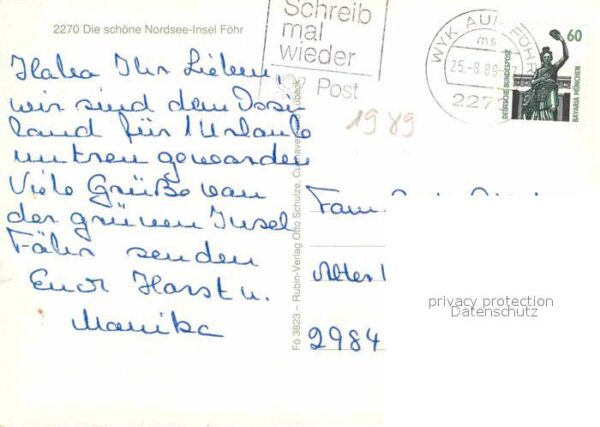 2270 Die schöne Nordsee-Insel Föhr
Schreib
mal
wieder
Post
WYK AUF FÖHR
ms
25.-8.89-17
2270
60
DEUTSCHE BUNDESPOST
BAVARIA MÜNCHEN
1989
Hallo Ihr Lieben,
wir sind dem
land für 1 Urlaub
untreu geworden
Viele Grüße von
der grünen Insel
Föhr senden
Euch Horst u.
Monika
Fö 3823 – Rubin-Verlag Otto Schulze, Cuxhaven
Fam
Alter
2984
privacy protection
Datenschutz